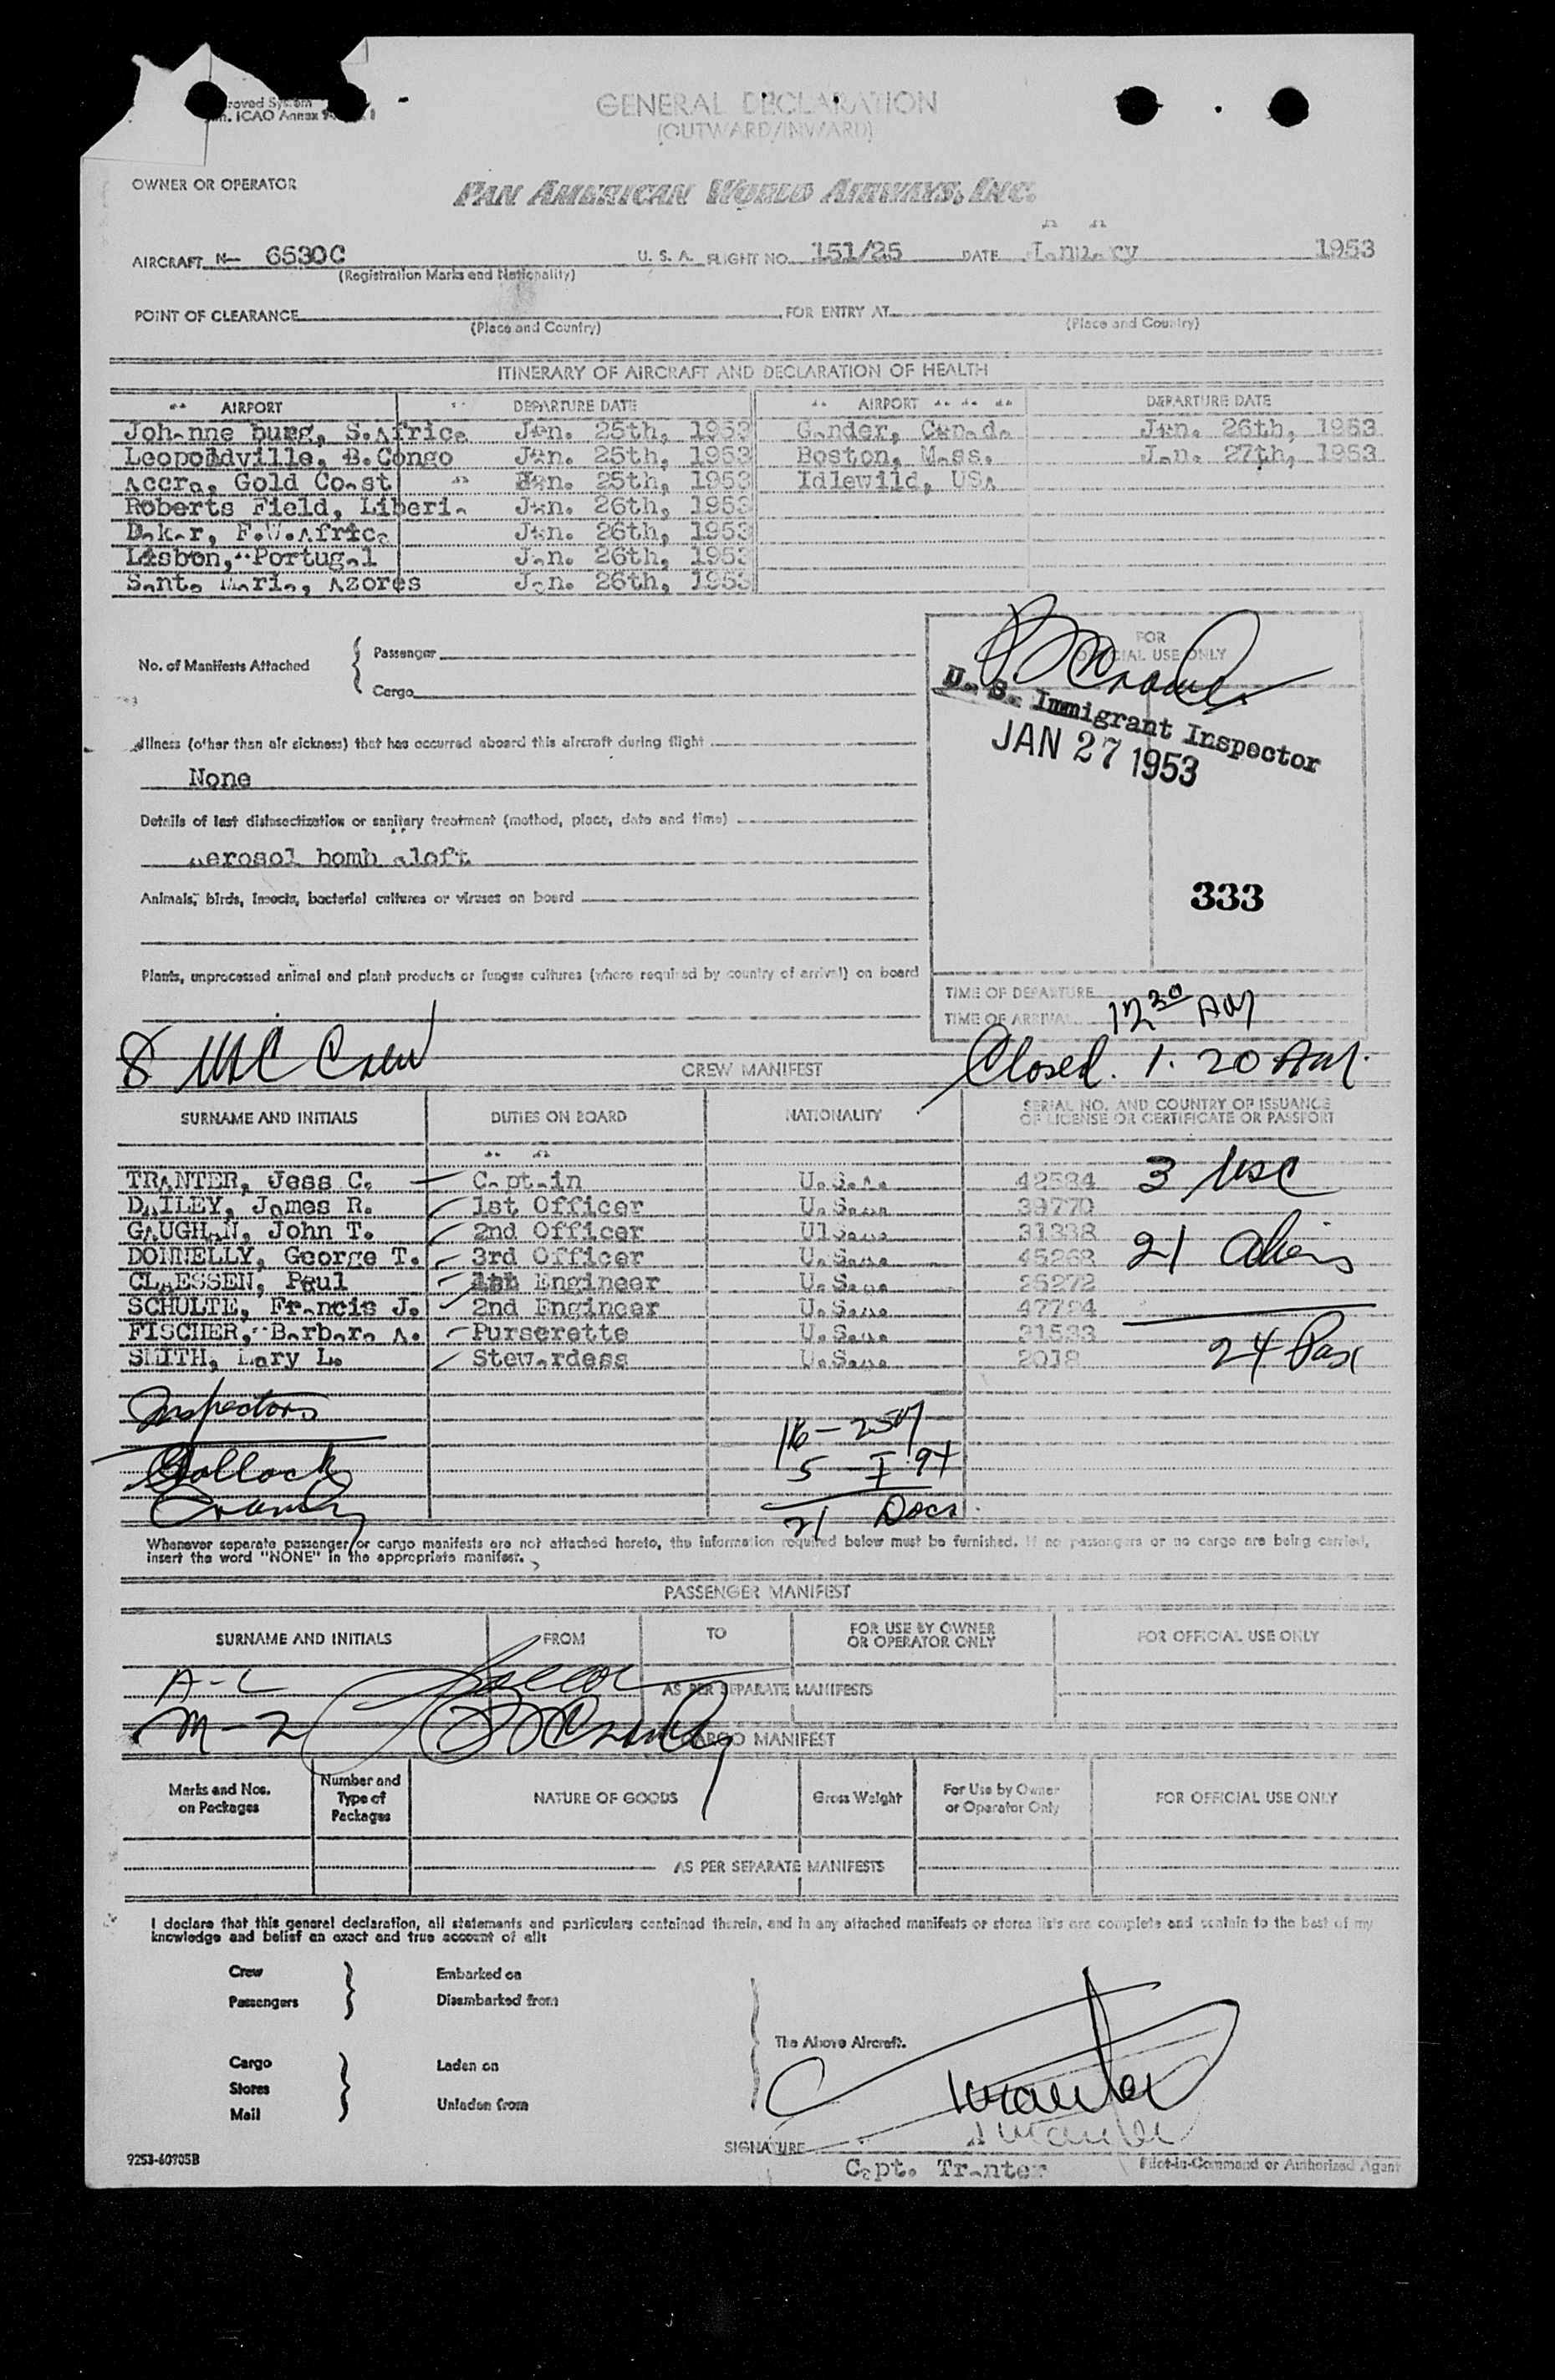 roved System
ICAO Annex
GENERAL DECLARATION
(OUTWARD/INWARD)
OWNER OR OPERATOR
PAN AMERICAN WORLD AIRWAYS, INC.
AIRCRAFT N- 6530C U. S. A. FLIGHT NO. 151/25 DATE January 1953
(Registration Marks and Nationality)
POINT OF CLEARANCE FOR ENTRY AT
(Place and Country) (Place and Country)
ITINERARY OF AIRCRAFT AND DECLARATION OF HEALTH
AIRPORT DEPARTURE DATE AIRPORT DEPARTURE DATE
Johanne burg, S.Africa Jan. 25th, 1953 Gander, Canada Jan. 26th, 1953
Leopoldville, B.Congo Jan. 25th, 1953 Boston, Mass. Jan. 27th, 1953
Accra, Gold Coast Jan. 25th, 1953 Idlewild, USA
Roberts Field, Liberia Jan. 26th, 1953
Dakar, F.W.Africa Jan. 26th, 1953
Lisbon, Portugal Jan. 26th, 1953
Santa Maria, Azores Jan. 26th, 1953
FOR
OFFICIAL USE ONLY
No. of Manifests Attached { Passenger
Cargo
U. S. Immigrant Inspector
JAN 27 1953
Illness (other than air sickness) that has occurred aboard this aircraft during flight
None
Details of last disinsectization or sanitary treatment (method, place, date and time)
Aerosol bomb aloft
Animals, birds, insects, bacterial cultures or viruses on board
333
Plants, unprocessed animal and plant products or fungus cultures (where required by country of arrival) on board
TIME OF DEPARTURE
TIME OF ARRIVAL 12 30 AM
8 USC Crew
CREW MANIFEST
Closed. 1. 20 AM.
SURNAME AND INITIALS DUTIES ON BOARD NATIONALITY SERIAL NO. AND COUNTRY OF ISSUANCE
OF LICENSE OR CERTIFICATE OR PASSPORT
TRANTER, Jess C. Captain U.S.A. 42584 3 USC
DAILEY, James R. 1st Officer U.S. 39770
GAUGHAN, John T. 2nd Officer UlS. 31338
DONNELLY, George T. 3rd Officer U.S. 45268 21 Aliens
CLAESSEN, Paul 1st Engineer U.S. 25272
SCHULTE, Francis J. 2nd Engineer U.S. 47784
FISCHER, Barbara A. Purserette U.S. 31533
SMITH, Mary L. Stewardess U.S. 2018 24 Pax
Inspectors
16 -
5 - I 94
21 Docs
Whenever separate passenger or cargo manifests are not attached hereto, the information required below must be furnished. If no passengers or no cargo are being carried,
insert the word "NONE" in the appropriate manifest.
PASSENGER MANIFEST
SURNAME AND INITIALS FROM TO FOR USE BY OWNER
OR OPERATOR ONLY FOR OFFICIAL USE ONLY
A-L
AS PER SEPARATE MANIFESTS
M-Z
CARGO MANIFEST
Marks and Nos.
on Packages Number and
Type of
Packages NATURE OF GOODS Gross Weight For Use by Owner
or Operator Only FOR OFFICIAL USE ONLY
AS PER SEPARATE MANIFESTS
I declare that this general declaration, all statements and particulars contained therein, and in any attached manifests or stores lists are complete and contain to the best of my
knowledge and belief an exact and true account of all:
Crew Embarked on
Passengers Disembarked from
The Above Aircraft.
Cargo Laden on
Stores
Mail Unladen from
Tranter
SIGNATURE
Capt. Tranter Pilot-in-Command or Authorized Agent
9253-60705B